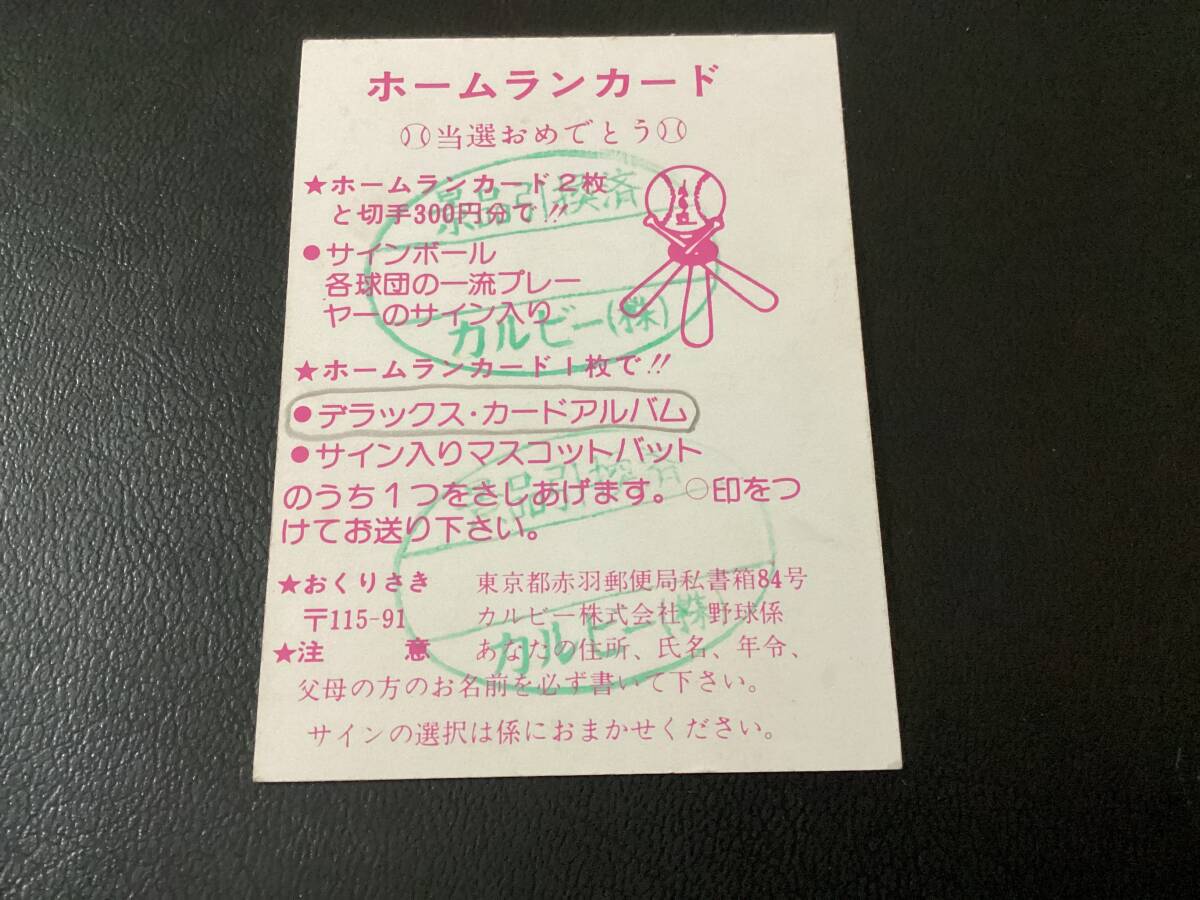 ホームランカード
当選おめでとう
★ホームランカード2枚
と切手300円分で!!
●サインボール
各球団の一流プレー
ヤーのサイン入り
★ホームランカード1枚で!!
●デラックス・カードアルバム
●サイン入りマスコットバット
のうち1つをさしあげます。○印をつ
けてお送り下さい。
★おくりさき 東京都赤羽郵便局私書箱84号
〒115-91 カルビー株式会社 野球係
★注 意 あなたの住所、氏名、年令、
父母の方のお名前を必ず書いて下さい。
サインの選択は係におまかせください。
景品引換済
カルビー(株)
景品引換済
カルビー(株)